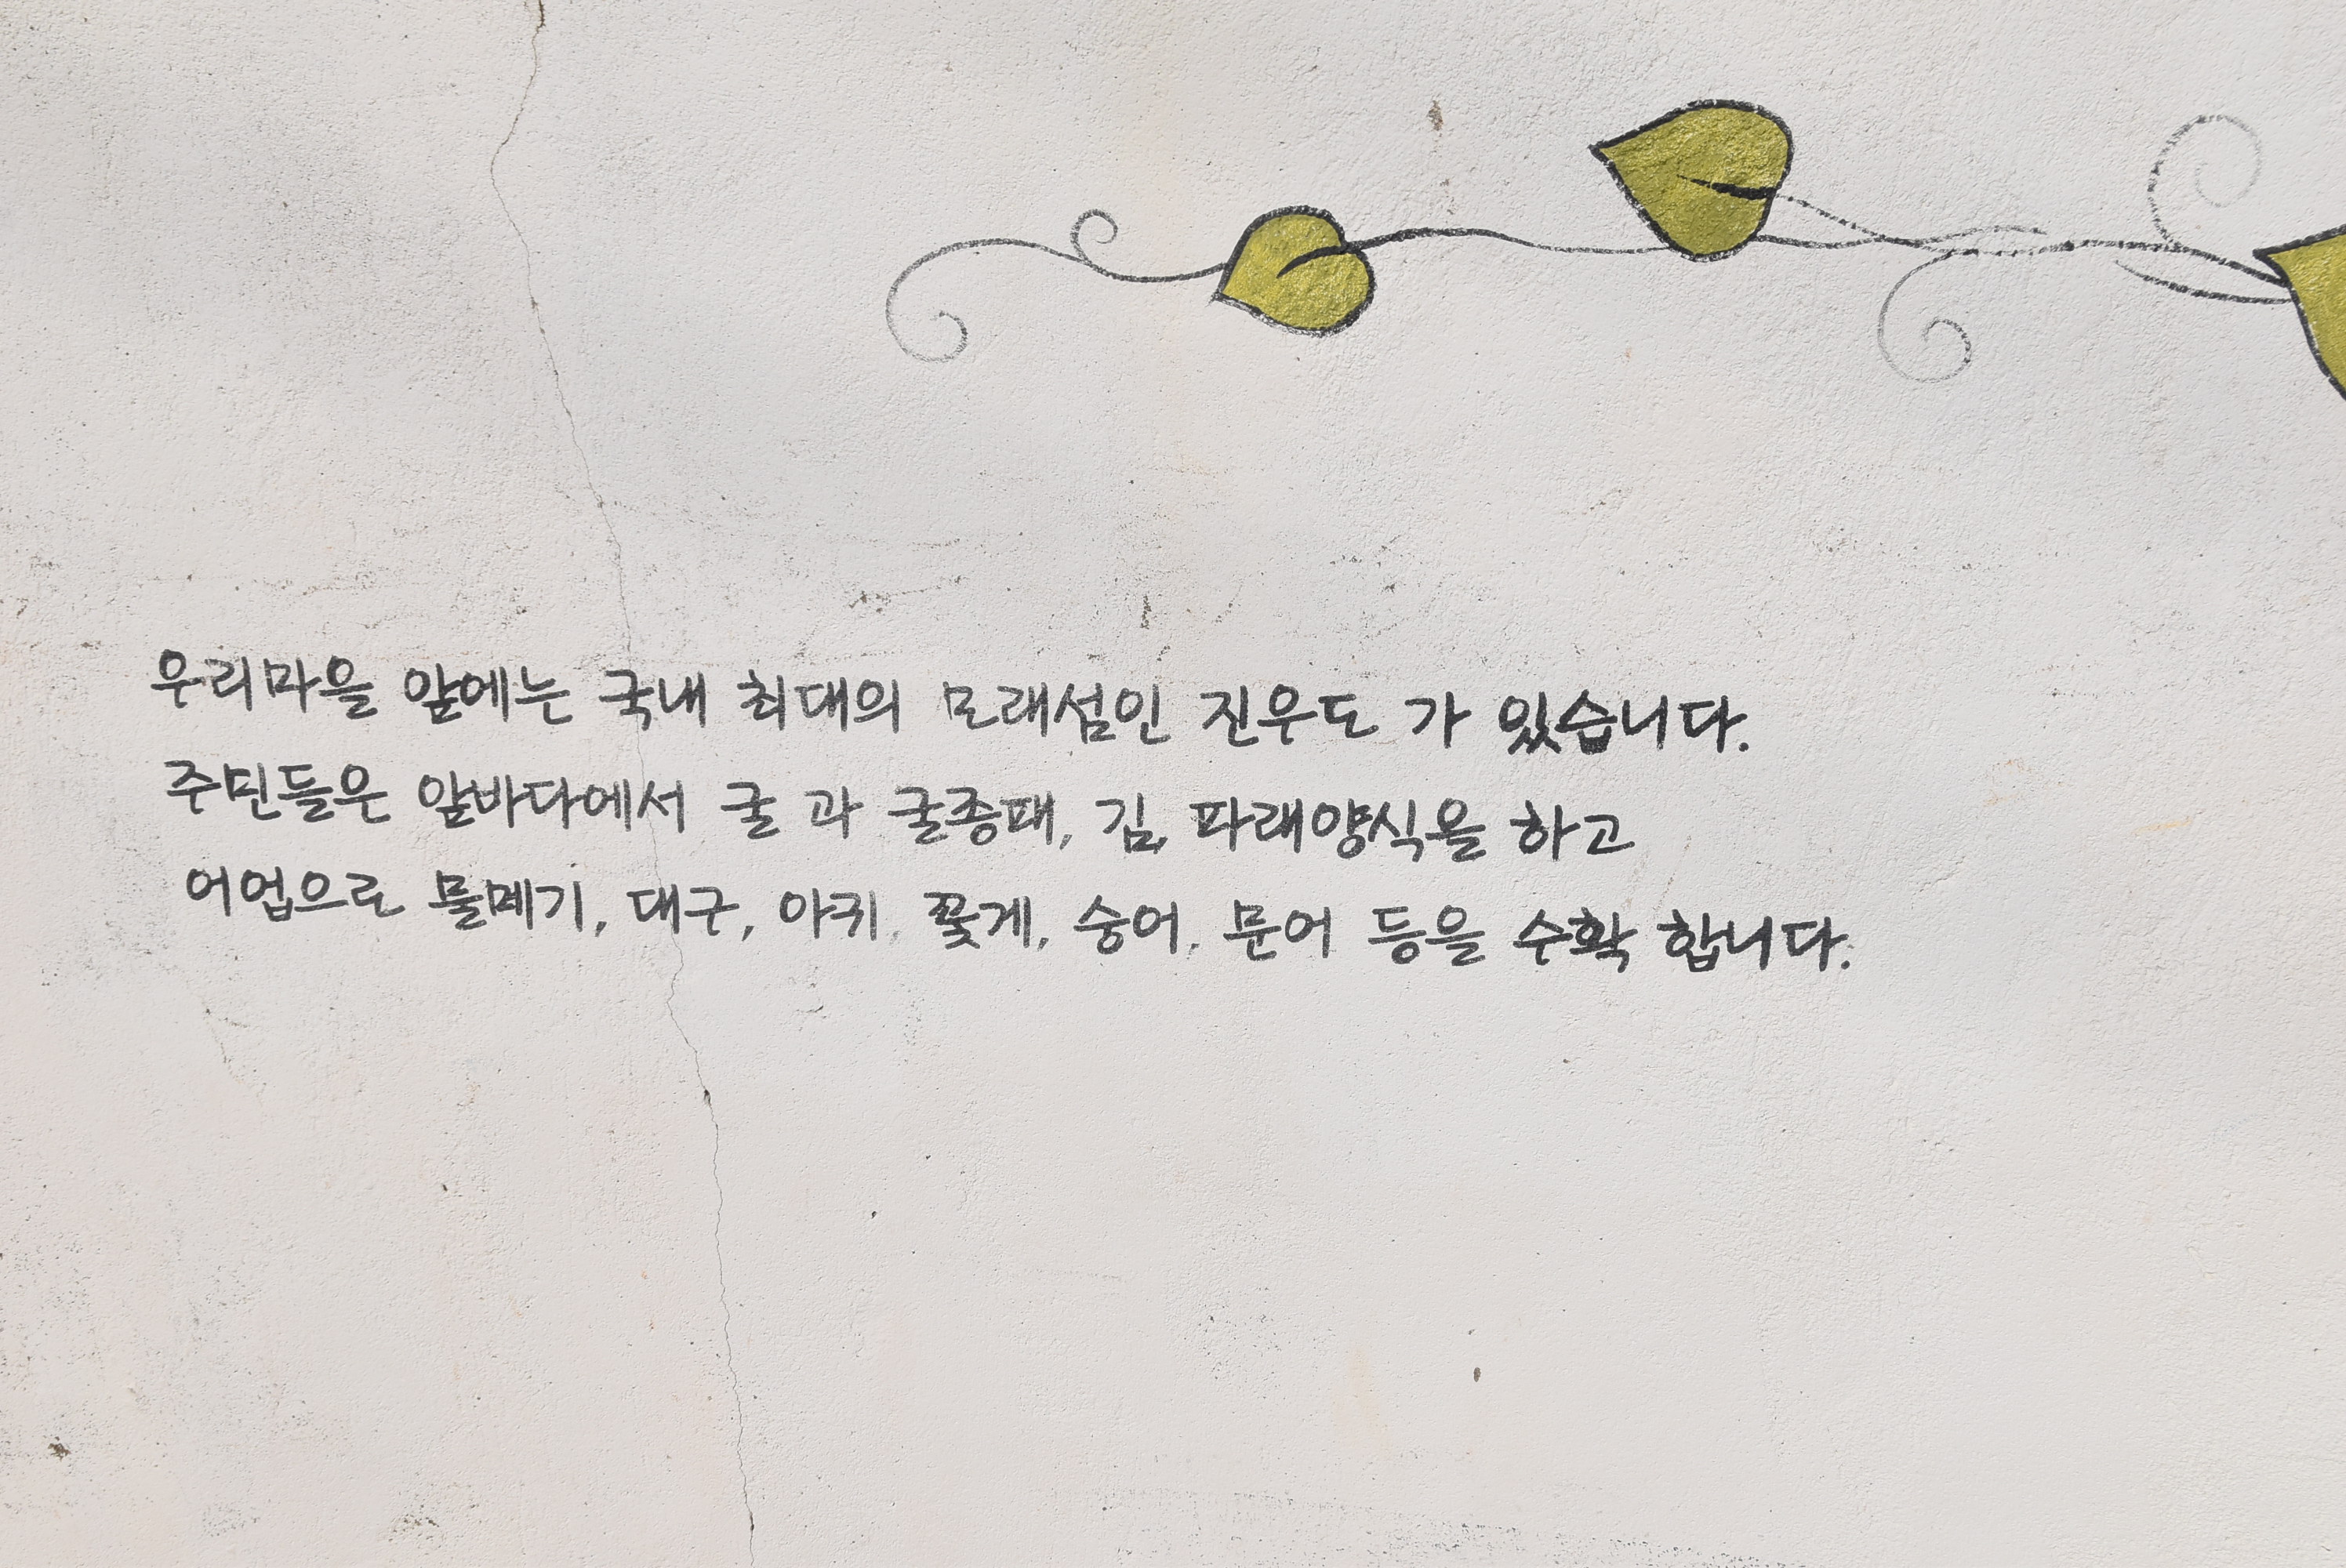 우리마을 앞에는 국내 최대의 모래섬인 진우도 가 있습니다.
주민들은 앞바다에서 굴 과 굴종패, 김, 파래양식을 하고
어업으로 물메기, 대구, 아귀, 꽃게, 숭어, 문어 등을 수확 합니다.